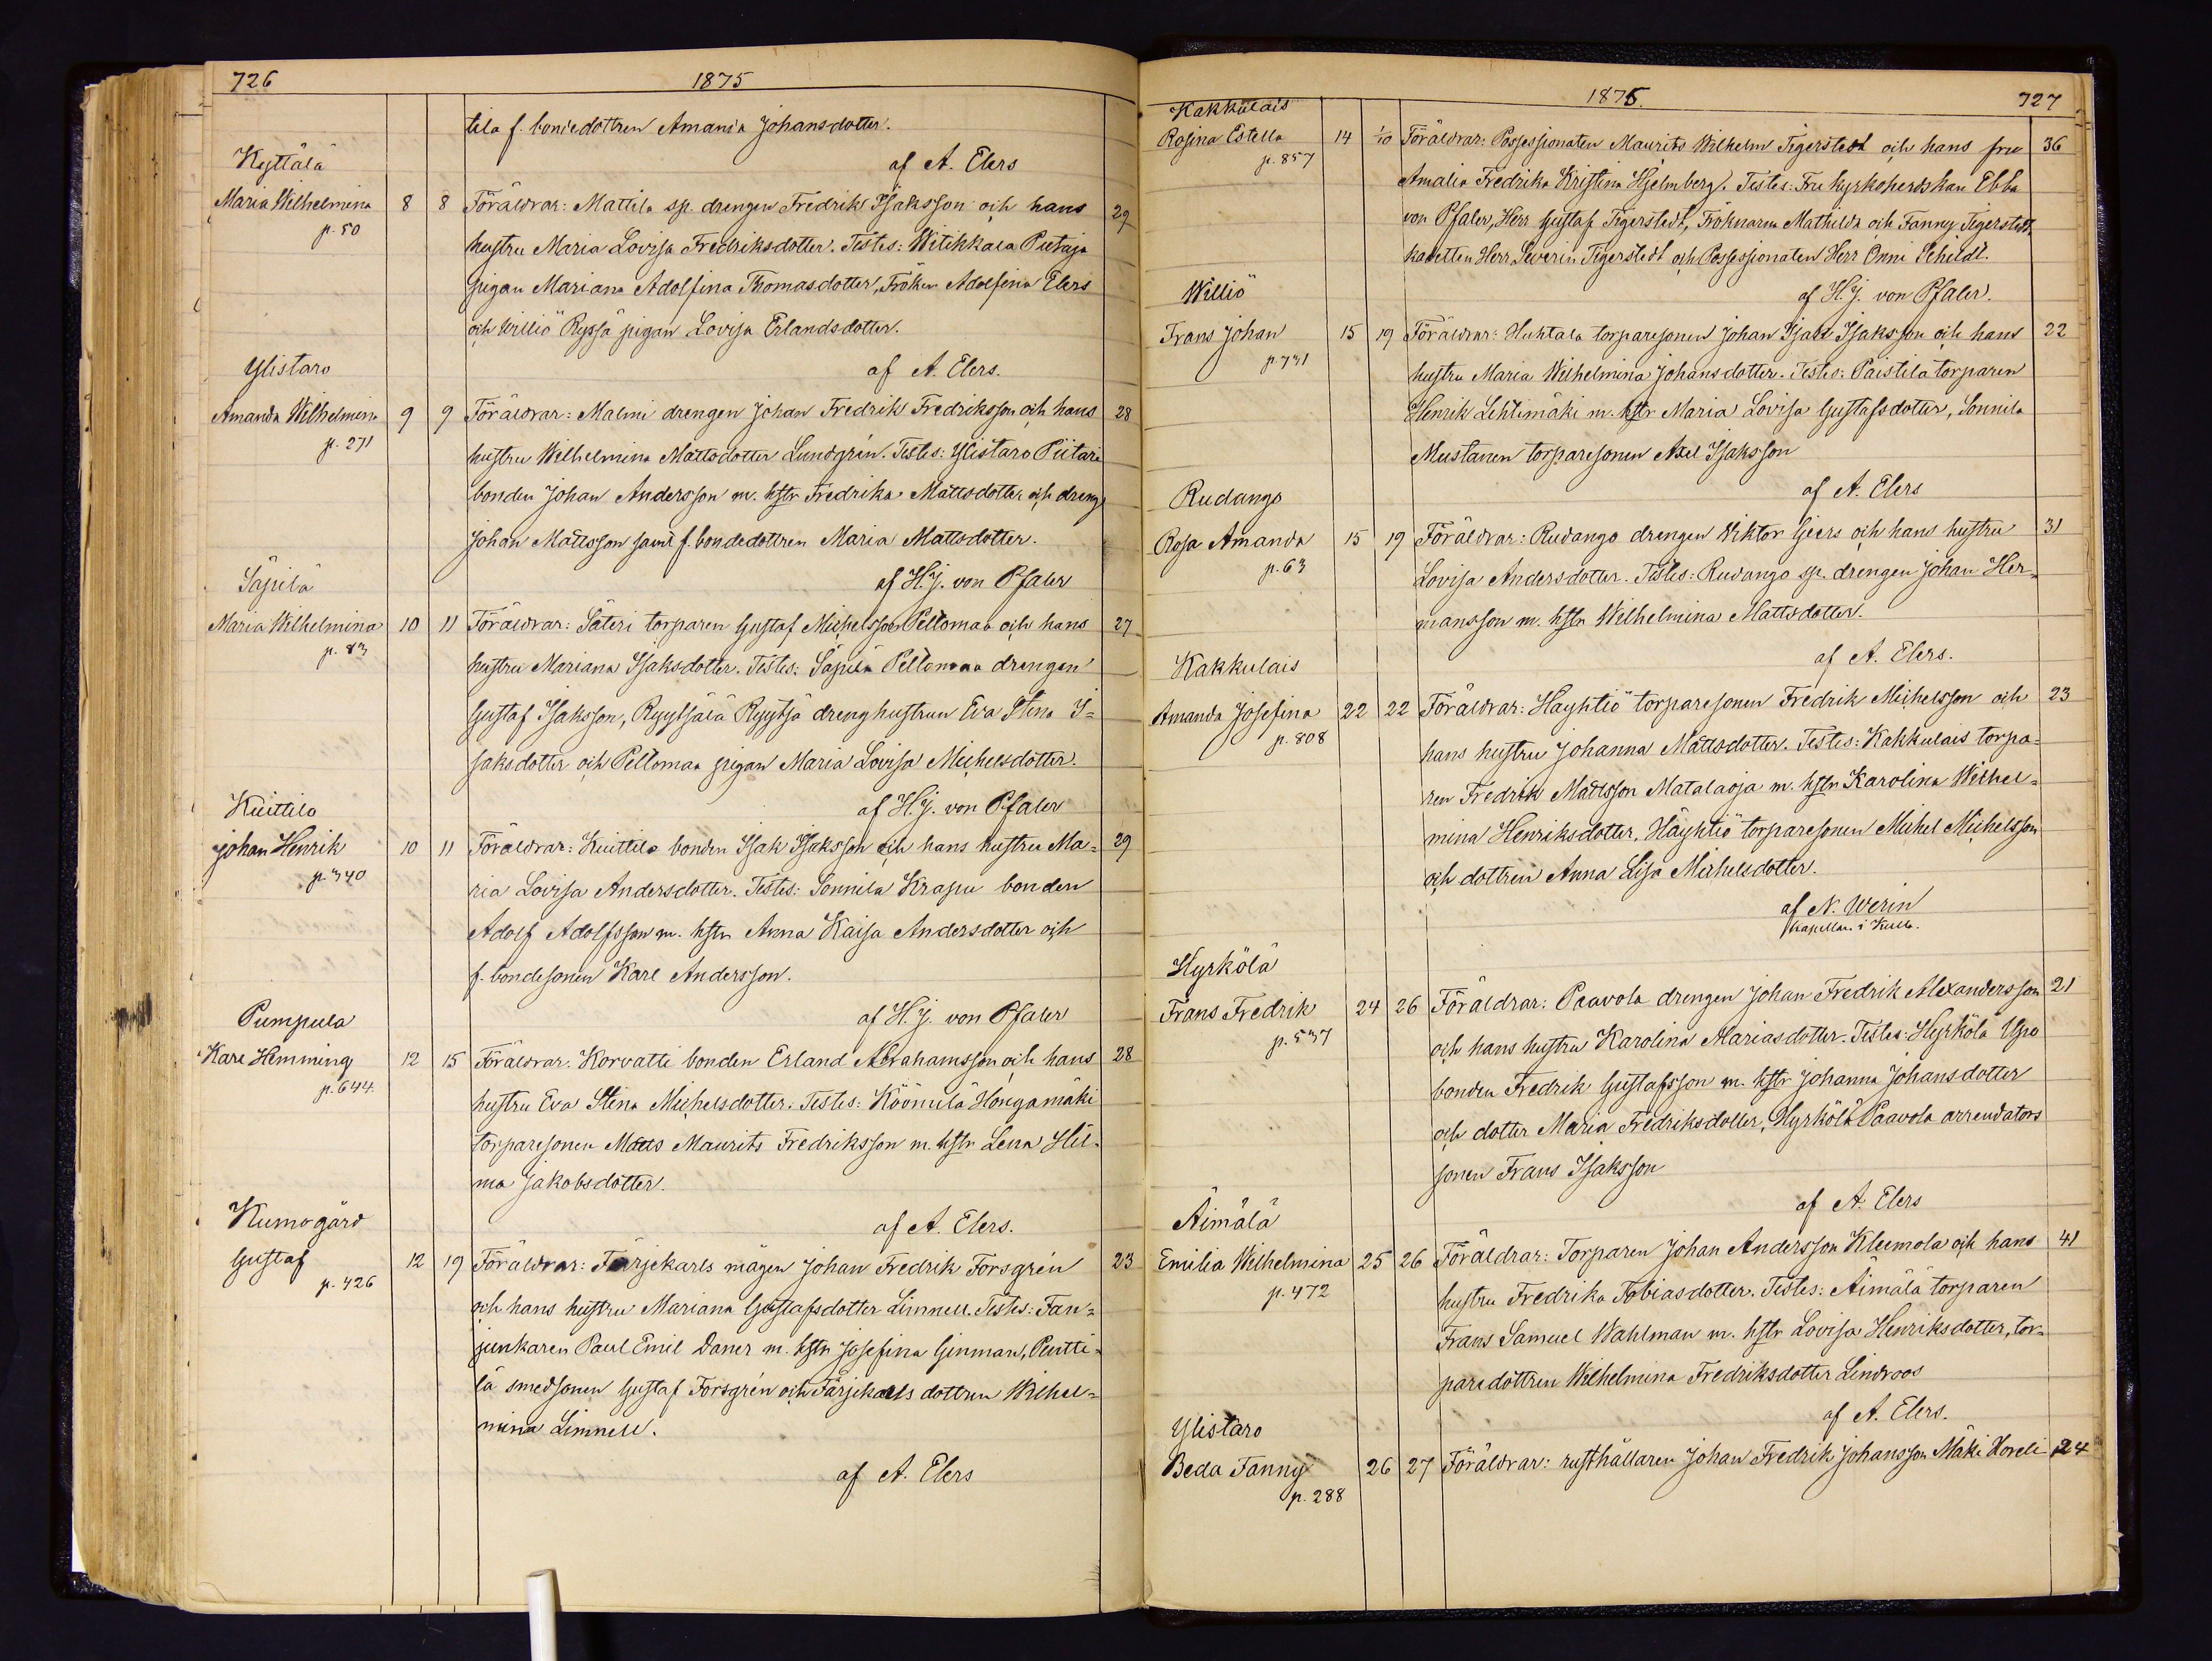 726
1875
tila f. bondedottren Amanda Johansdotter.
af A. Elers
Kyttälä
Maria Wilhelmina 8 8 Föräldrar: Mattila sp. drengen Fredrik Isaksson och hans 29
p. 50
hustru Maria Lovisa Fredriksdotter. Testes: Witikkala Pietaja
pigan Mariana Adolfina Thomasdotter, Fröken Adolfina Elers
och Williö Ryssä pigan Lovisa Erlandsdotter.
af A. Elers.
Ylistaro
Amanda Wilhelmina 9 9 Föräldrar: Malmi drengen Johan Fredrik Fredriksson och hans 28
p. 271
hustru Wilhelmina Mattsdotter Lundgrén. Testes: Ylistaro Piitari
bonden Johan Andersson m. hstr Fredrika Mattsdotter och dreng
Johan Mattsson samt f. bondedottren Maria Mattsdotter.
af H.J. von Pfaler
Säpilä
Maria Wilhelmina 10 11 Föräldrar: Säteri torparen Gustaf Michelsson Peltomaa och hans 27
p. 83
hustru Mariana Isaksdotter. Testes: Säpilä Peltomaa drengen
Gustaf Isaksson, Ryytsälä Ryytsä drenghustrun Eva Stina I=
saksdotter och Peltomaa pigan Maria Lovisa Michelsdotter.
af H.J. von Pfaler
Kuittilo
Johan Henrik 10 11 Föräldrar: Kuittilo bonden Isak Isaksson och hans hustru Ma= 29
p. 340
ria Lovisa Andersdotter. Testes: Sonnila Krapu bonden
Adolf Adolfsson m. hstr Anna Kaisa Andersdotter och
f. bondesonen Karl Andersson.
af H.J. von Pfaler
Pumpula
Karl Hemming 12 15 Föräldrar: Korvatti bonden Erland Abrahamsson och hans 28
p. 644
hustru Eva Stina Michelsdotter. Testes: Köönnilä Hongamäki
torparesonen Matts Maurits Fredriksson m. hstr Lena Hil=
ma Jakobsdotter.
af A. Elers.
Kumogård
Gustaf 12 19 Föräldrar: Färjekarls mågen Johan Fredrik Forsgrén 23
p. 426
och hans hustru Mariana Gustafsdotter Limnell. Testes: Fan=
junkaren Paul Emil Daner m. hstr Josefina Ginman, Pentti=
lä smedsonen Gustaf Forsgrén och Färjekarls dottren Wilhel=
mina Limnell.
af A. Elers
1875.
727
Kakkulais
Rosina Estella 14 1/10 Föräldrar: Possessionaten Maurits Wilhelm Tigerstedt och hans fru 36
p. 857
Amalia Fredrika Kristina Hjelmberg. Testes: Fru kyrkoherdskan Ebba
von Pfaler, Herr Gustaf Tigerstedt, Fröknarna Mathilda och Fanny Tigerstedt,
kadetten Herr Severin Tigerstedt och Possessionaten Herr Onni Schildt.
af H.J. von Pfaler.
Williö
Frans Johan 15 19 Föräldrar: Huhtala torparesonen Johan Isak Isaksson och hans 22
p. 731
hustru Maria Wilhelmina Johansdotter. Testes: Paistila torparen
Henrik Lehtimäki m. hstr Maria Lovisa Gustafsdotter, Sonnila
Mustanen torparesonen Axel Isaksson
af A. Elers
Rudango
Rosa Amanda 15 19 Föräldrar: Rudango drengen Wiktor Geers och hans hustru 31
p. 63
Lovisa Andersdotter. Testes: Rudango sp. drengen Johan Her=
mansson m. hstr Wilhelmina Mattsdotter.
af A. Elers.
Kakkulais
Amanda Josefina 22 22 Föräldrar: Häyhtiö torparesonen Fredrik Michelsson och 23
p. 808
hans hustru Johanna Mattsdotter. Testes: Kakkulais torpa=
ren Fredrik Mattsson Matalaoja m. hstr Karolina Wilhel=
mina Henriksdotter, Häyhtiö torparesonen Michel Michelsson
och dottren Anna Lisa Michelsdotter.
af N. Werin
kapellan i Kull.
Hyrkölä
Frans Fredrik 24 26 Föräldrar: Paavola drengen Johan Fredrik Alexandersson 21
p. 537
och hans hustru Karolina Mariasdotter. Testes: Hyrkölä Upo
bonden Fredrik Gustafsson m. hstr Johanna Johansdotter
och dotter Maria Fredriksdotter, Hyrkölä Paavola arrendators
sonen Frans Isaksson
af A. Elers
Äimälä
Emilia Wilhelmina 25 26 Föräldrar: Torparen Johan Andersson Kleemola och hans 41
p. 472
hustru Fredrika Tobiasdotter. Testes: Äimälä torparen
Frans Samuel Wahlman m. hstr Lovisa Henriksdotter, tor=
paredottren Wilhelmina Fredriksdotter Lindroos
af A. Elers.
Ylistaro
Beda Fanny 26 27 Föräldrar: rusthållaren Johan Fredrik Johansson Mäki Hoveli 24
p. 288